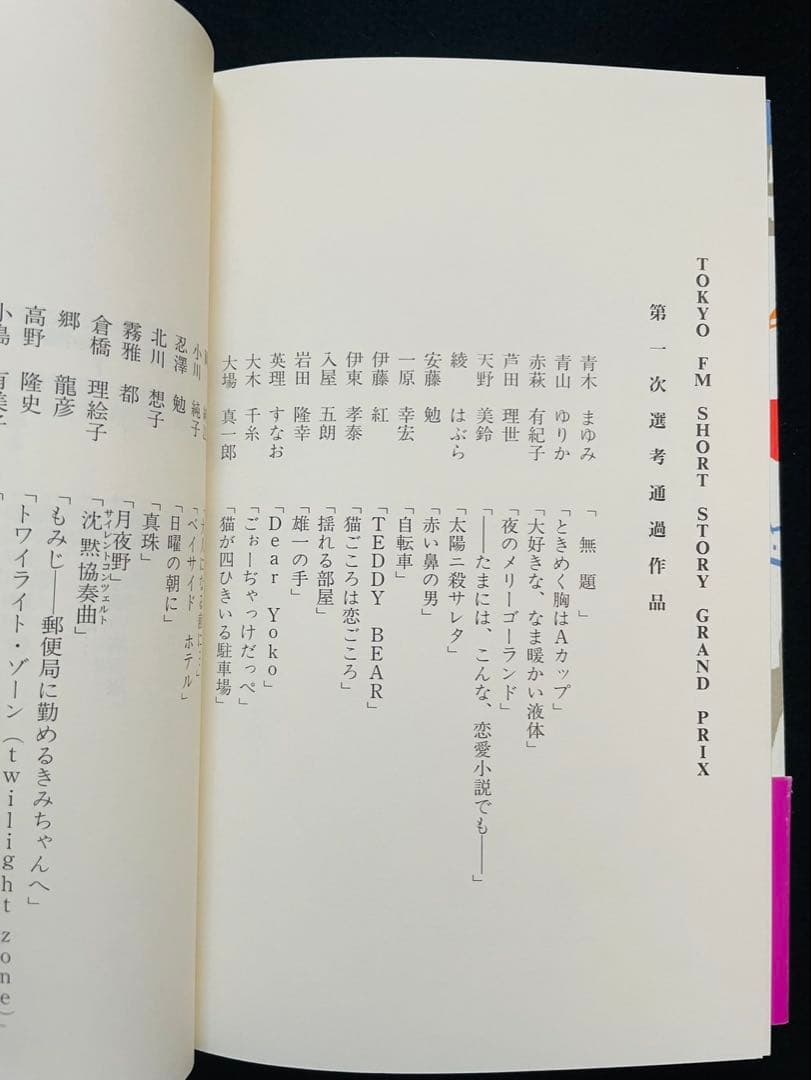 TOKYO FM SHORT STORY GRAND PRIX
第一次選考通過作品
青木 まゆみ 「無題」
青山 ゆりか 「ときめく胸はAカップ」
赤萩 有紀子 「大好きな、なま暖かい液体」
芦田 理世 「夜のメリーゴーランド」
天野 美鈴 「――たまには、こんな、恋愛小説でも――」
綾 はぶら 「太陽ニ殺サレタ」
安藤 勉 「赤い鼻の男」
一原 幸宏 「自転車」
伊藤 紅 「TEDDY BEAR」
伊東 孝泰 「猫ごころは恋ごころ」
入屋 五朗 「揺れる部屋」
岩田 隆幸 「雄一の手」
英理 すなお 「Dear Yoko」
大木 千糸 「ごぉーぢゃっけだっぺ」
大場 真一郎 「猫が四ひきいる駐車場」
小川 純子 「ベイサイド ホテル」
忍澤 勉 「日曜の朝に」
北川 想子 「真珠」
霧雅 都 「月夜野」
倉橋 理絵子 「沈黙協奏曲」
サイレントコンツェルト
郷 龍彦 「もみじ――郵便局に勤めるきみちゃんへ」
高野 隆史 「トワイライト・ゾーン（twilight zone）」
小島 有美子